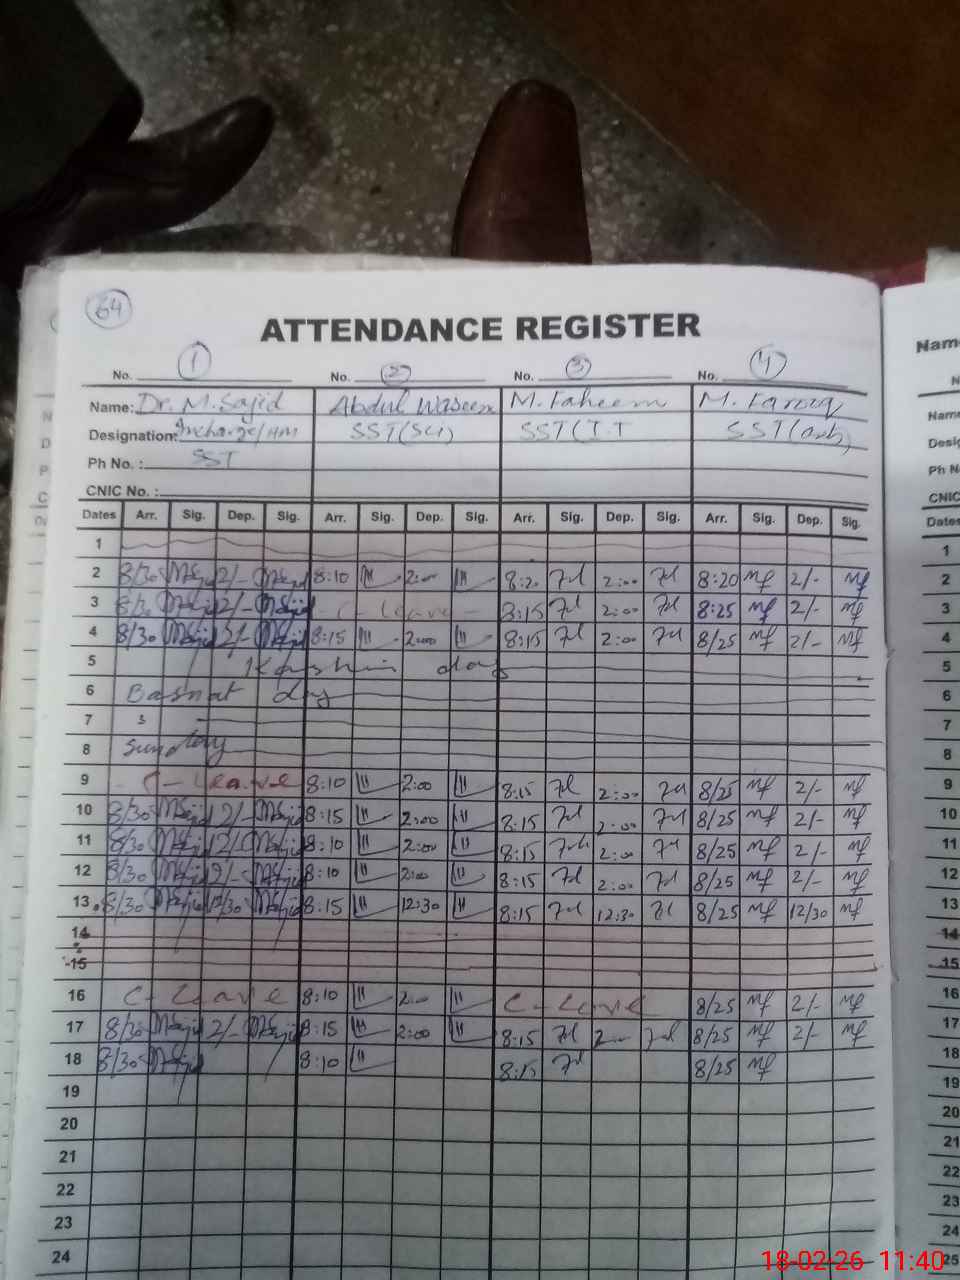 64
ATTENDANCE REGISTER
No. 1 No. 2 No. 3 No. 4
Name: Dr. M. Sajid Abdul Waseem M. Faheem M. Farooq
Designation: Incharge/HM SST(Sci) SST(I.T SST
Ph No. : SST
CNIC No. :
Dates Arr. Sig. Dep. Sig. Arr. Sig. Dep. Sig. Arr. Sig. Dep. Sig. Arr. Sig. Dep. Sig.
1
2 8/30 2/- 8:10 2:00 8:20 2:00 8:20 mf 2/- mf
3 8/30 2/- C-leave 8:15 2:00 8:25 mf 2/- mf
4 8/30 2/- 8:15 2:00 8:15 2:00 8/25 mf 2/- mf
5 day
6 Basnat day
7
8 Sunday
9 C-leave 8:10 2:00 8:15 2:00 8/25 mf 2/- mf
10 8/30 2/- 8:15 2:00 8:15 2:00 8/25 mf 2/- mf
11 8/30 2/- 8:10 2:00 8:15 2:00 8/25 mf 2/- mf
12 8/30 2/- 8:10 2:00 8:15 2:00 8/25 mf 2/- mf
13 8/30 12/30 8:15 12:30 8:15 12:30 8/25 mf 12/30 mf
14
15
16 C-Leave 8:10 2:00 C-Leave 8/25 mf 2/- mf
17 8/30 2/- 8:15 2:00 8:15 8/25 mf 2/- mf
18 8/30 8:10 8:15 8/25 mf
19
20
21
22
23
24
Name
Desig
Ph N
CNIC
Dates
1
2
3
4
5
6
7
8
9
10
11
12
13
14
15
16
17
18
19
20
21
22
23
24
25
18-02-26 11:40